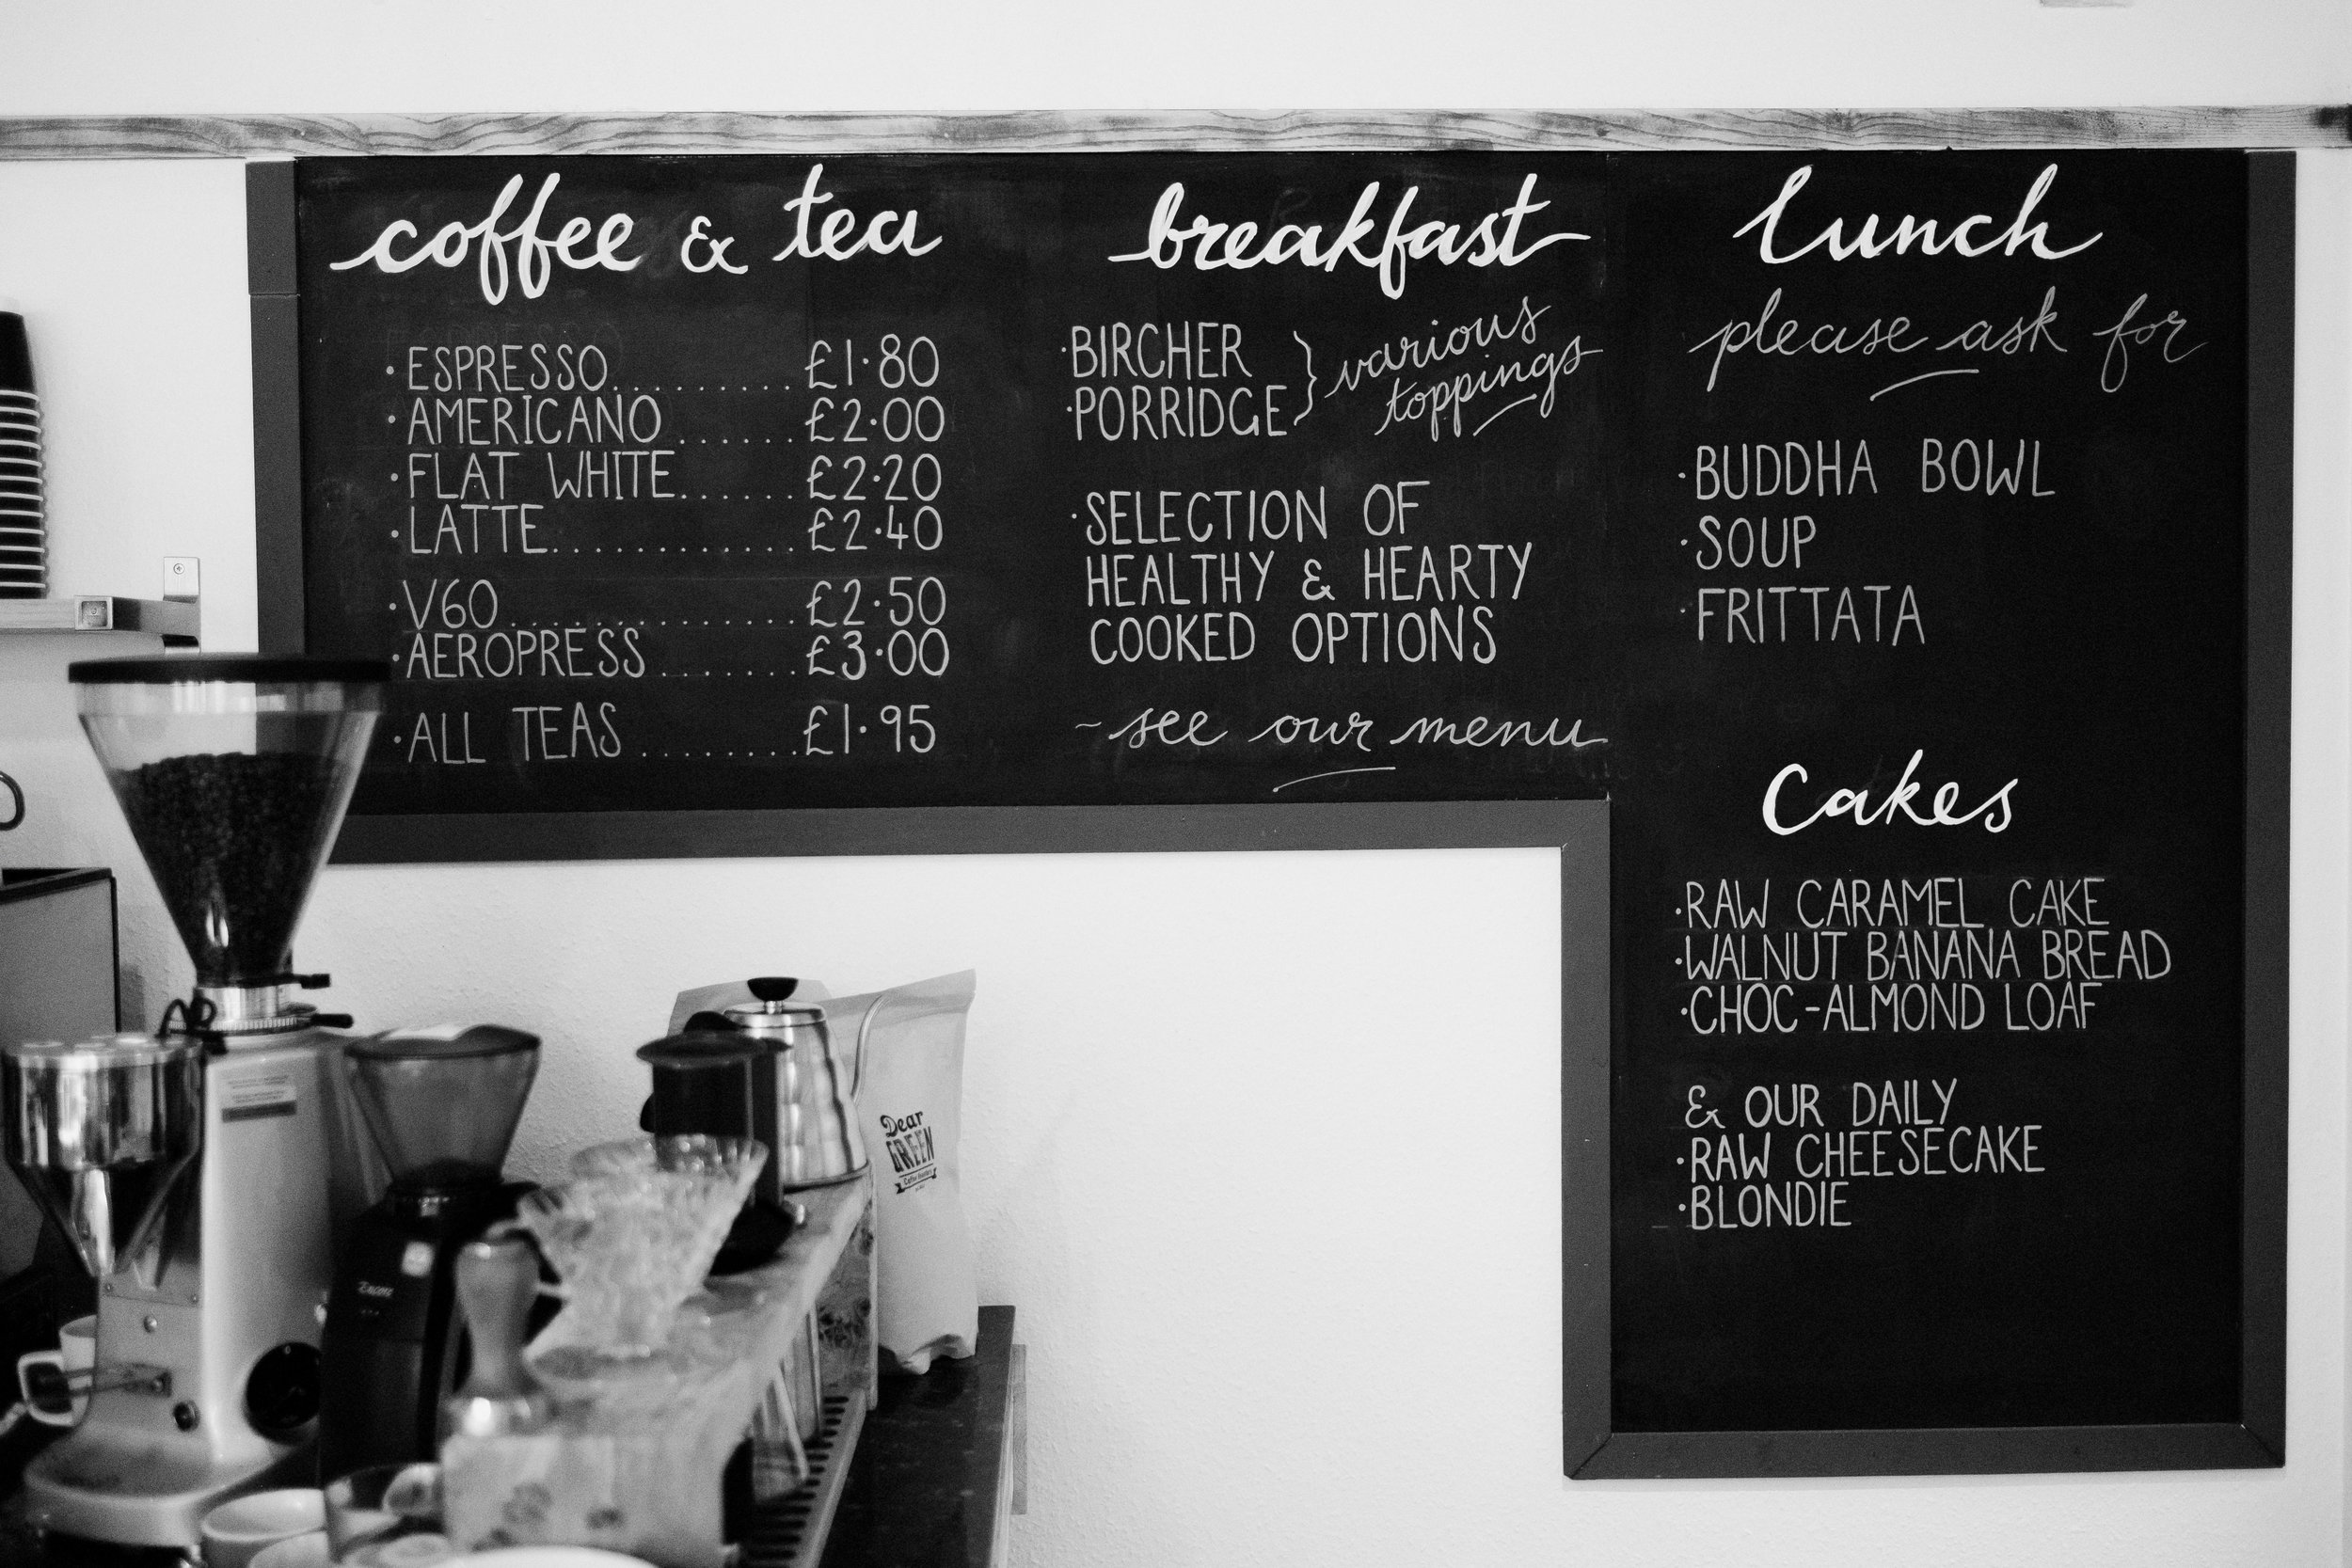 coffee & tea
· ESPRESSO......... £1·80
· AMERICANO...... £2·00
· FLAT WHITE...... £2·20
· LATTE............. £2·40
· V60............... £2·50
· AEROPRESS....... £3·00
· ALL TEAS........ £1·95
breakfast
· BIRCHER
· PORRIDGE } various
toppings
· SELECTION OF
HEALTHY & HEARTY
COOKED OPTIONS
~ see our menu
lunch
please ask for
· BUDDHA BOWL
· SOUP
· FRITTATA
Cakes
· RAW CARAMEL CAKE
· WALNUT BANANA BREAD
· CHOC-ALMOND LOAF
& OUR DAILY
· RAW CHEESECAKE
· BLONDIE
Dear
GREEN
Coffee Roasters